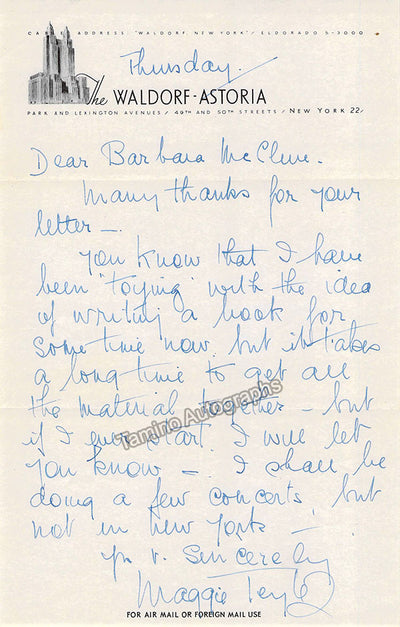 CABLE ADDRESS "WALDORF, NEW YORK" / ELDORADO 5-3000
Thursday.
The WALDORF-ASTORIA
PARK AND LEXINGTON AVENUES / 49TH AND 50TH STREETS / NEW YORK 22/
Dear Barbara McClure.
Many thanks for your
letter –.
You know that I have
been "toying" with the idea
of writing a book for
some time now. but it takes
a long time to get all
the material together – but
if I ever start. I will let
you know –. I shall be
doing a few concerts, but
not in New York –
yrs v. Sincerely
Maggie Teyte
Tamino Autographs
FOR AIR MAIL OR FOREIGN MAIL USE